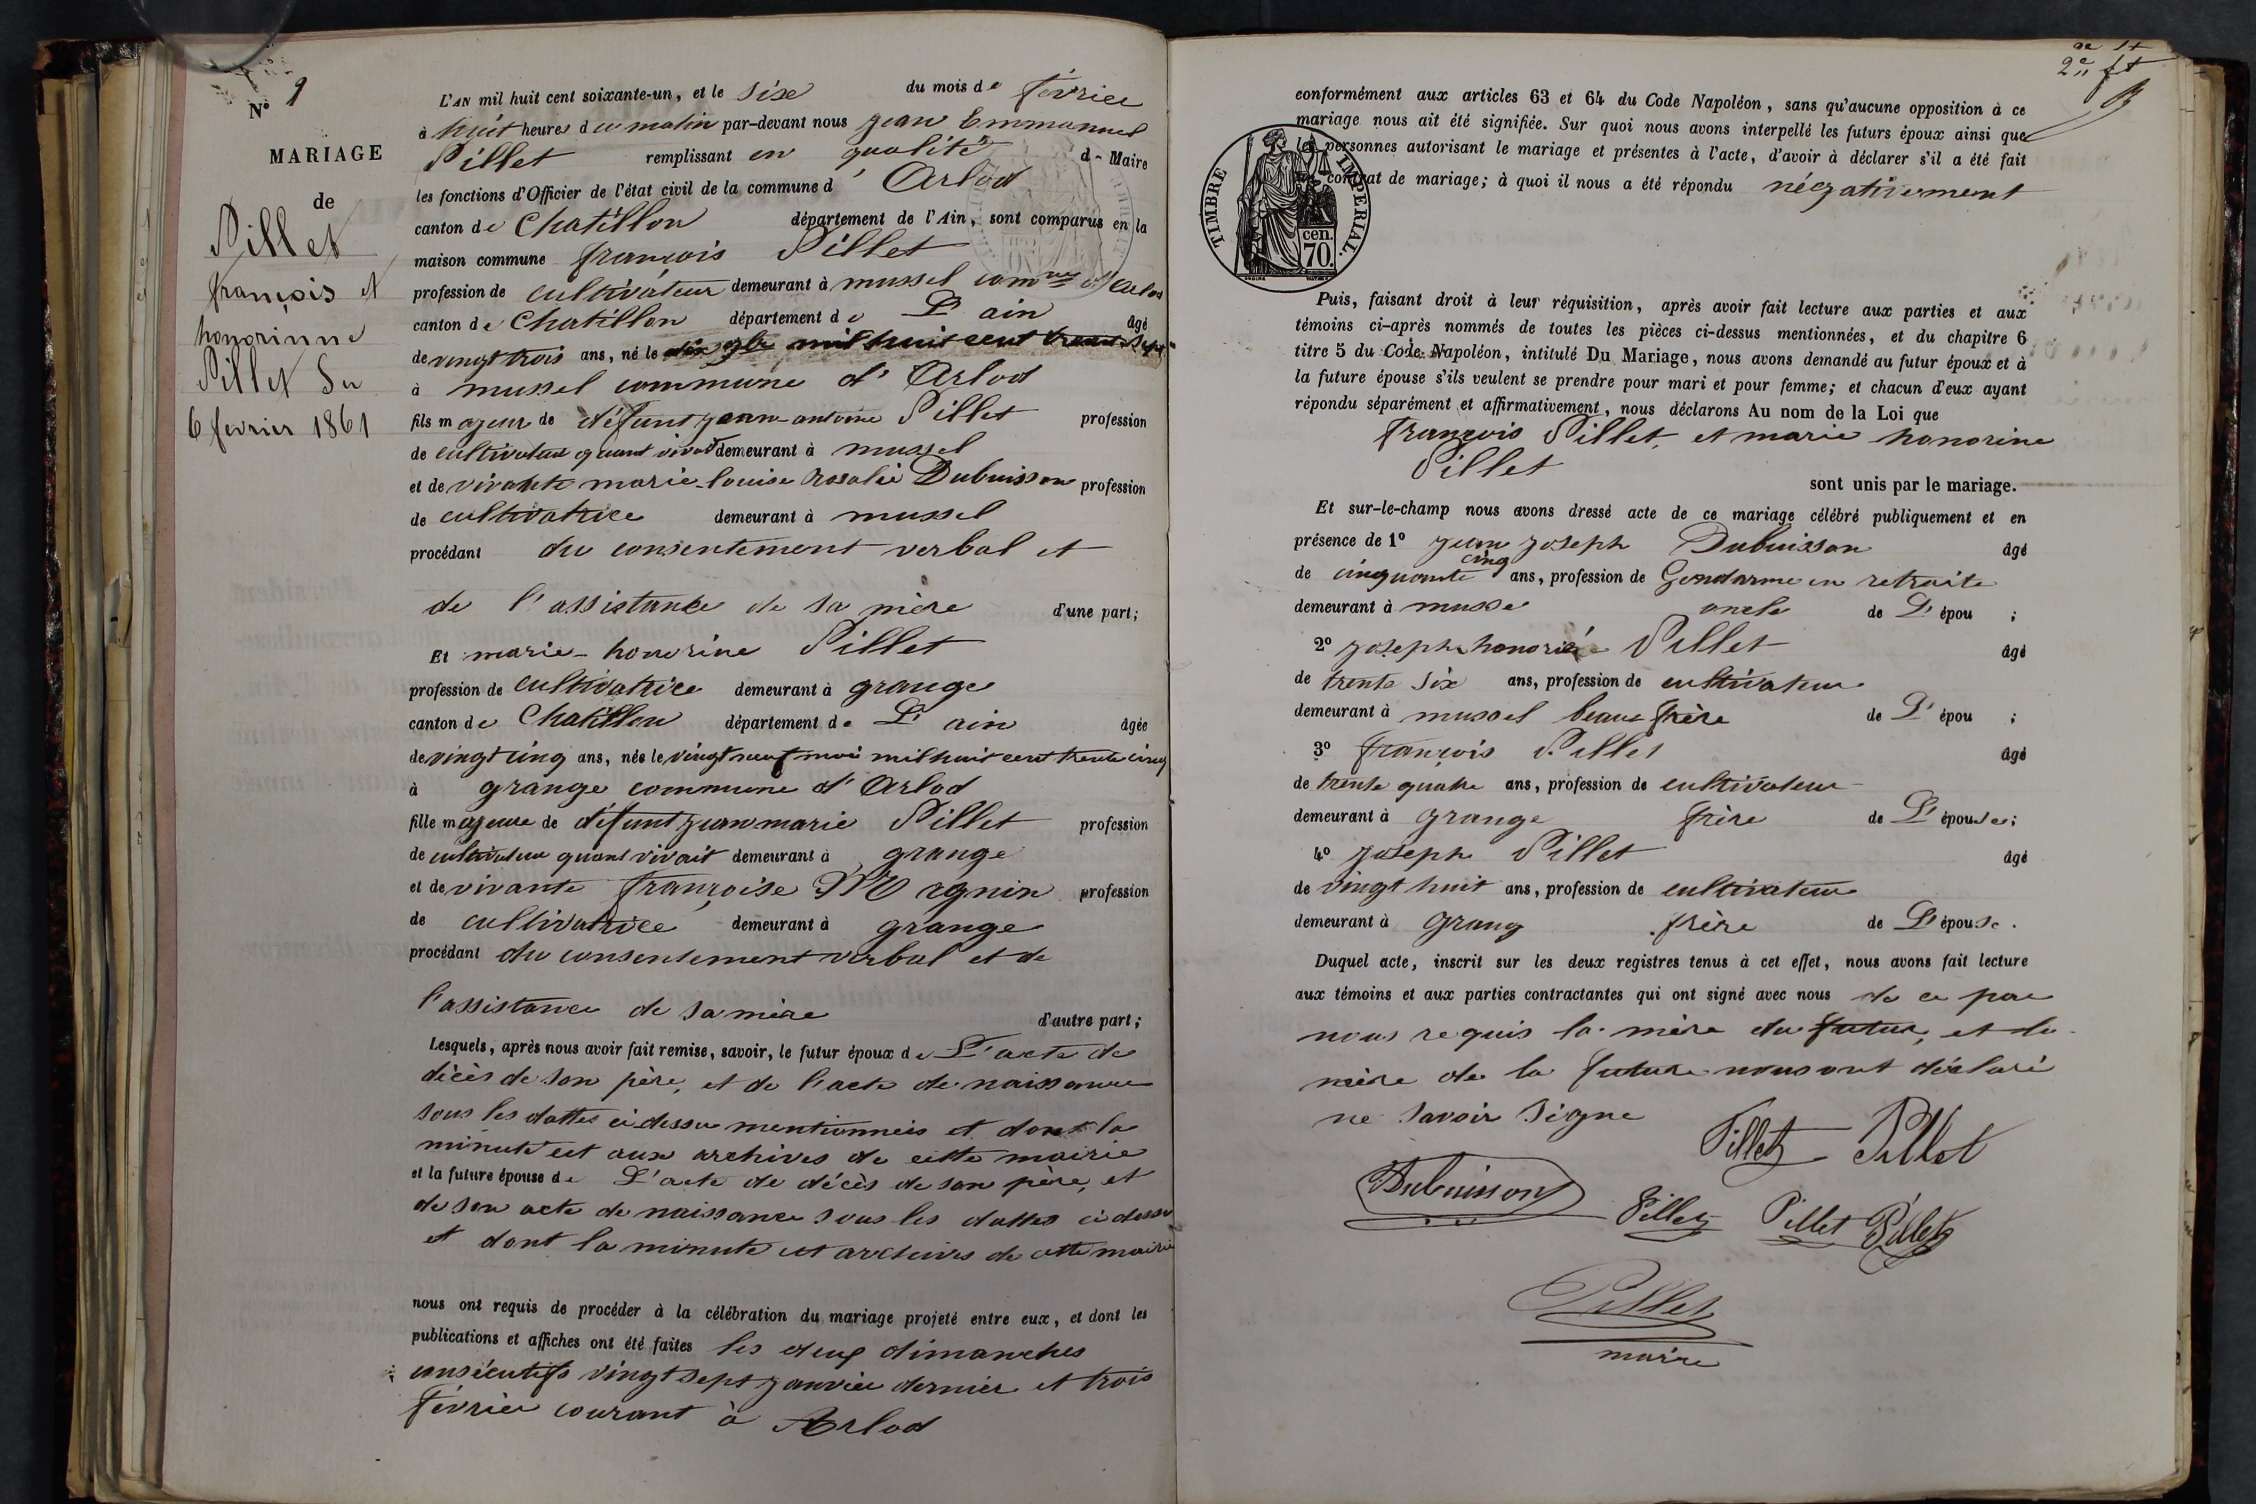 N° 9
MARIAGE
de
Pillet
françois et
honorinne
Pillet Du
6 fevrier 1861
L'AN mil huit cent soixante-un, et le six du mois de février
à huit heures du matin par-devant nous jean Emmanuel
Pillet remplissant en qualité de Maire
les fonctions d'Officier de l'état civil de la commune d' Arlod
canton de Chatillon département de l'Ain, sont comparus en la
maison commune françois Pillet
profession de cultivateur demeurant à mussel comne d'Arlod
canton de Chatillon département de L'ain âgé
de vingt trois ans, né le dix 9bre mil huit cent trente sept
à mussel commune d'Arlod
fils majeur de défunt jean-antoine Pillet profession
de cultivateur quant vivait demeurant à mussel
et de vivante marie-louise rosalie Dubuisson profession
de cultivatrice demeurant à mussel
procédant du consentement verbal et
de l'assistance de sa mère d'une part;
Et marie-honorine Pillet
profession de cultivatrice demeurant à grange
canton de Chatillon département de L'ain âgée
de vingt cinq ans, née le vingt neuf mai mil huit cent trente cinq
à grange commune d'Arlod
fille majeure de défunt jean marie Pillet profession
de cultivateur quant vivait demeurant à grange
et de vivante françoise profession
de cultivatrice demeurant à grange
procédant du consentement verbal et de
l'assistance de sa mère d'autre part;
Lesquels, après nous avoir fait remise, savoir, le futur époux de L'acte de
décès de son père, et de l'acte de naissance
sous les dattes ci dessu mentionnées et dont la
minute est aux archives de cette mairie
et la future épouse de L'acte de décès de son père, et
de son acte de naissance sous les dattes ci dessu
et dont la minute est archives de cette mairie
nous ont requis de procéder à la célébration du mariage projeté entre eux, et dont les
publications et affiches ont été faites les deux dimanches
consécutifs vingt sept janvier dernier et trois
février courant à Arlod
2e ft
conformément aux articles 63 et 64 du Code Napoléon, sans qu'aucune opposition à ce
mariage nous ait été signifiée. Sur quoi nous avons interpellé les futurs époux ainsi que
les personnes autorisant le mariage et présentes à l'acte, d'avoir à déclarer s'il a été fait
un contrat de mariage; à quoi il nous a été répondu négativement
TIMBRE IMPÉRIAL.
cen.
70.
Puis, faisant droit à leur réquisition, après avoir fait lecture aux parties et aux
témoins ci-après nommés de toutes les pièces ci-dessus mentionnées, et du chapitre 6
titre 5 du Code Napoléon, intitulé Du Mariage, nous avons demandé au futur époux et à
la future épouse s'ils veulent se prendre pour mari et pour femme; et chacun d'eux ayant
répondu séparément et affirmativement, nous déclarons Au nom de la Loi que
françois Pillet, et marie honorine
Pillet
sont unis par le mariage.
Et sur-le-champ nous avons dressé acte de ce mariage célébré publiquement et en
présence de 1° jean joseph Dubuisson âgé
de cinquante cinq ans, profession de Gendarme en retraite
demeurant à musse oncle de L'épou ;
2° joseph honoré Pillet âgé
de trente six ans, profession de cultivateur
demeurant à mussel beau frère de L'épou ;
3° françois Pillet âgé
de trente quatre ans, profession de cultivateur
demeurant à grange frère de L'épouse;
4° joseph Pillet âgé
de vingt huit ans, profession de cultivateur
demeurant à grang frère de L'épouse.
Duquel acte, inscrit sur les deux registres tenus à cet effet, nous avons fait lecture
aux témoins et aux parties contractantes qui ont signé avec nous de ce par
nous requis la mère du futur, et la
mère de la future nous ont déclaré
ne savoir signe
Pillet Pillet
Dubuisson Pillet Pillet Pillet
Pillet
maire